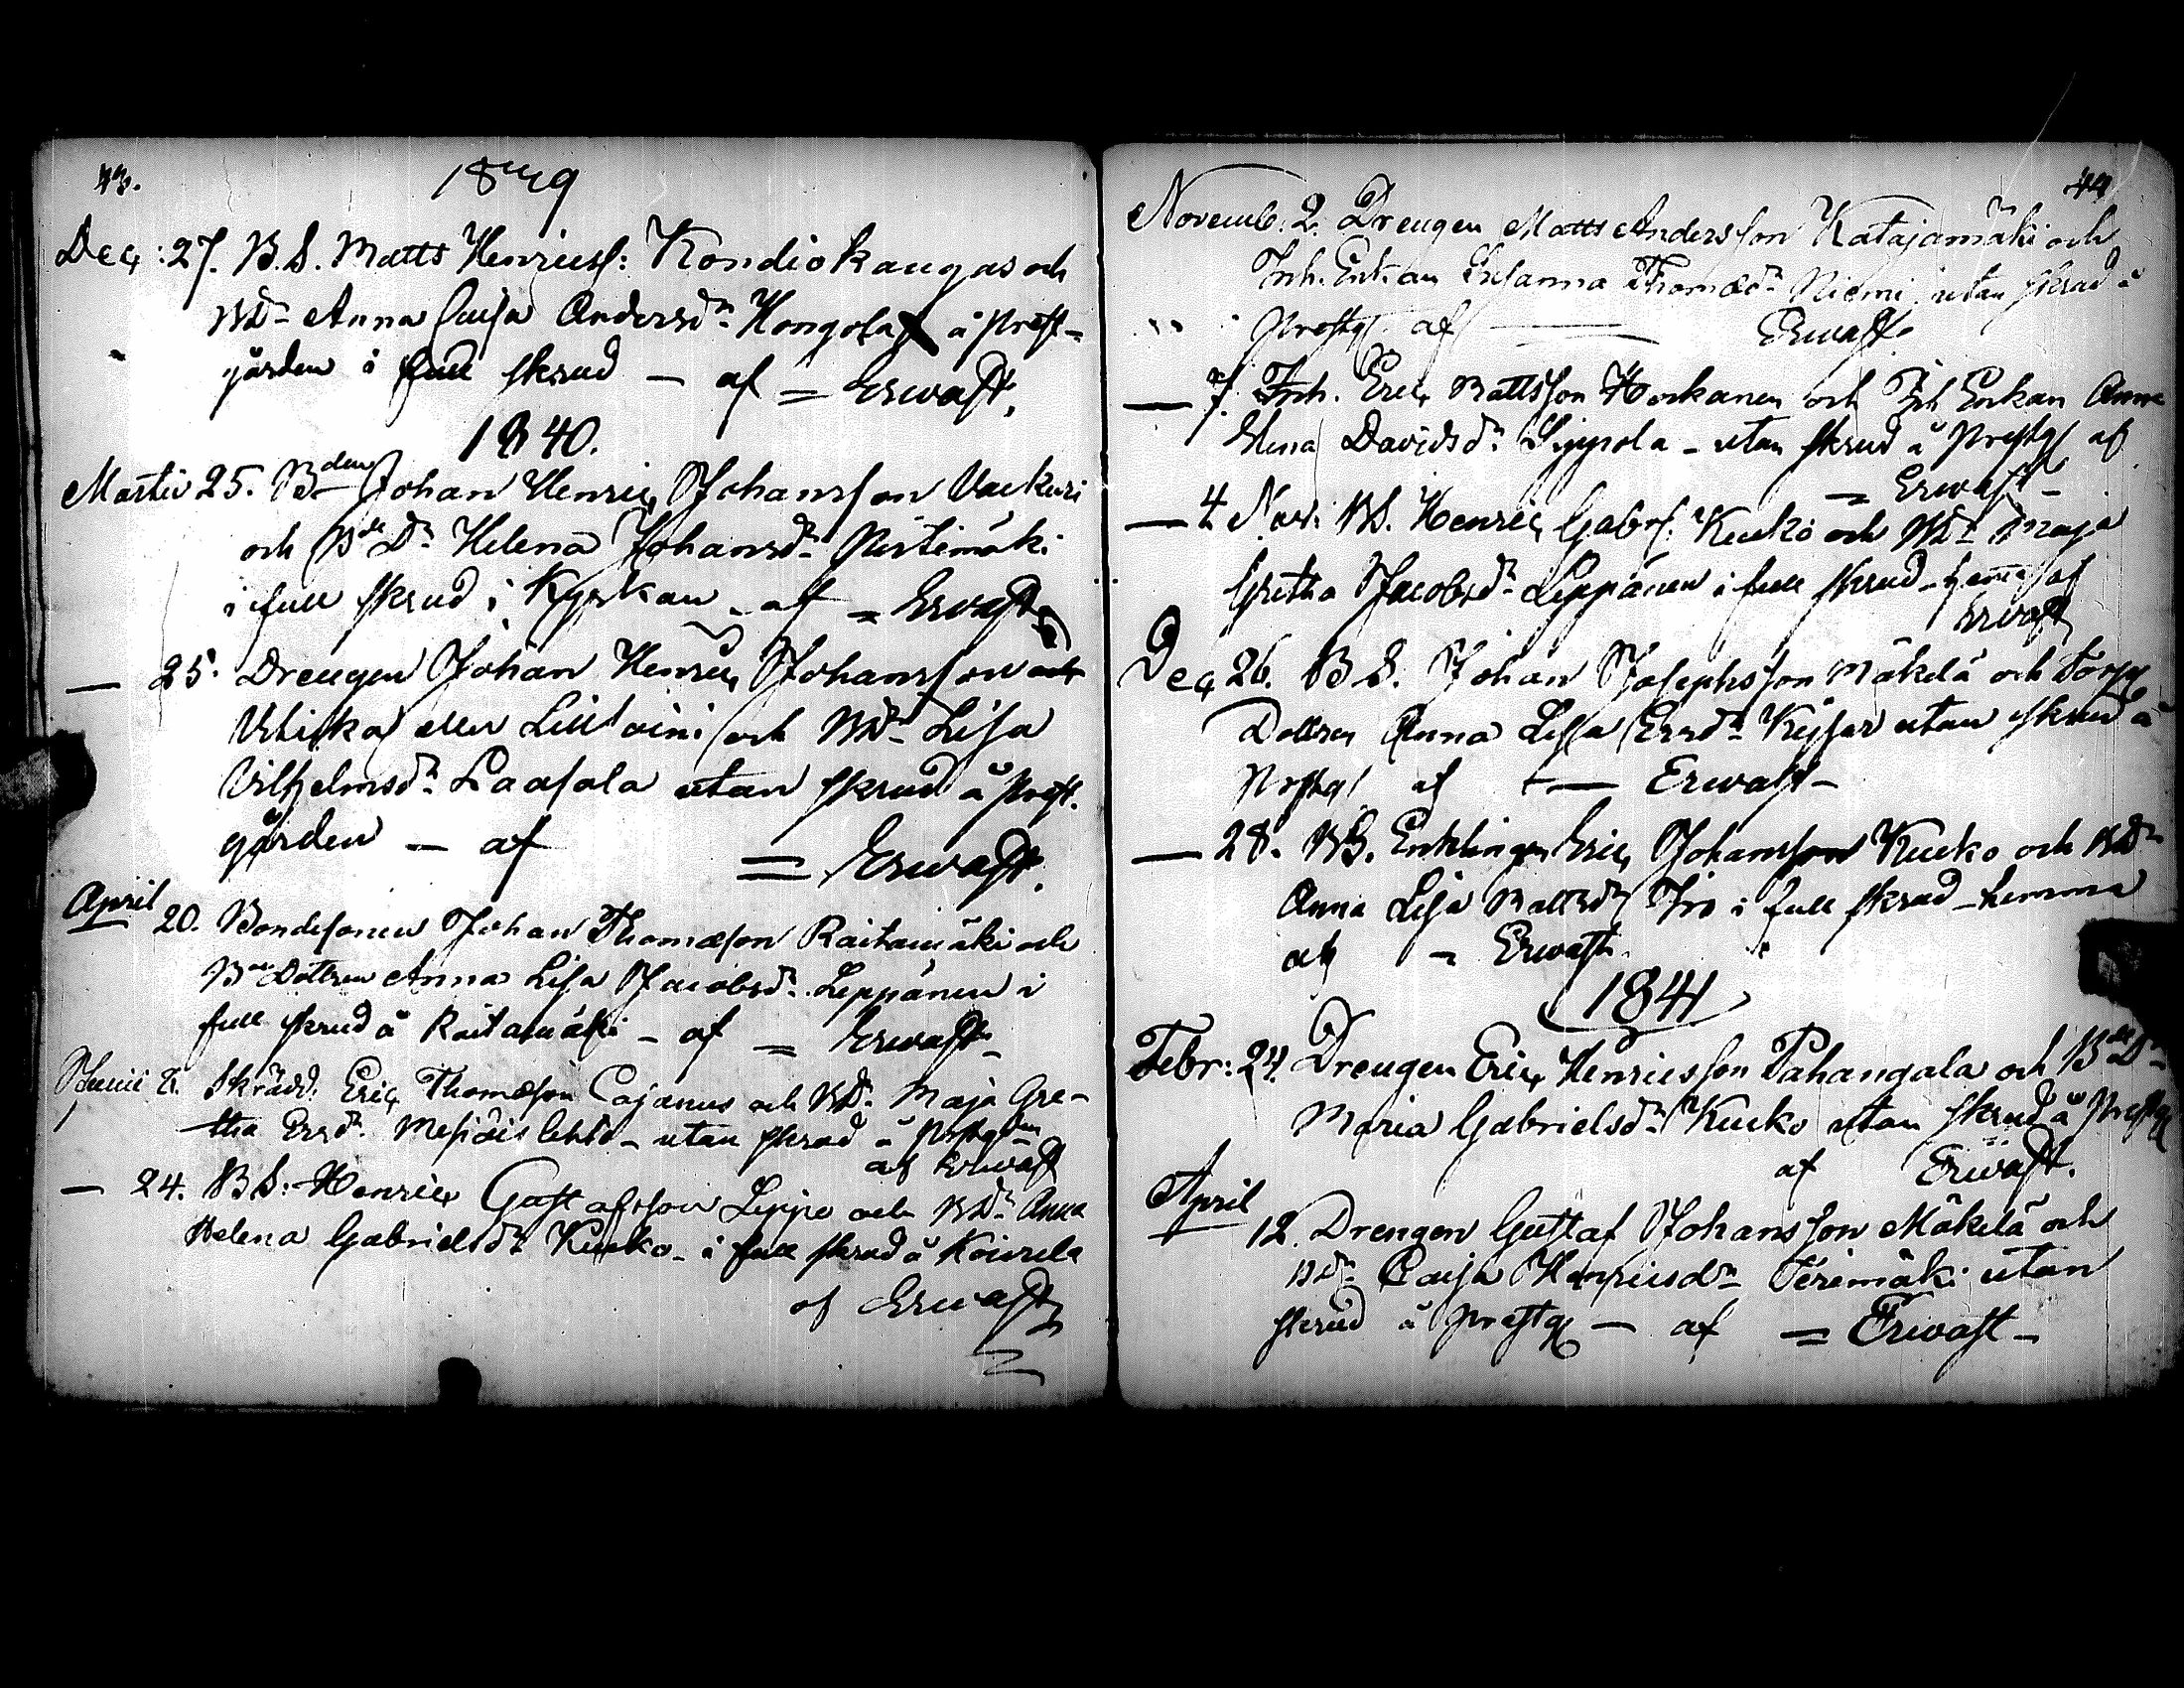 43.
1839
Dec: 27. B.S. Matts Henricss: Kondiokangas och
BDr Anna Caisa Andersdr Hongola å Prest-
gården i full skrud – af = Erwast.
1840.
Martii 25. Bden Johan Henric Johansson Vackuri
och Bde Dr Helena Johansdr Ristimäki
i full skrud i Kyrkan – af = Erwast
— 25. Drengen Johan Henric Johansson
eller Lilltoini och BDr Lisa
Vilhelmsdr Laasala utan skrud å Prest-
gården – af = Erwast.
April 20. Bondesonen Johan Thomæson Raitamäki och
Bde Dottren Anna Lisa Jacobsdr Leppänen i
full skrud å Raitamäki – af = Erwast –
Junii Skrädd: Eric Thomæson Cajanus och BDr Maja Gre-
tha Ersdr utan skrud å Prestgden
af Erwast
— 24. BS: Henric Gustafsson Leppe och BDr Anna
Helena Gabrielsdr Kucko – i full skrud å
af Erwast
44
Novemb: 2. Drengen Matts Andersson Katajamäki och
Inh. Enkan Susanna Thomædr Niemi utan skrud å
Prestg af — Erwast.
— 7. Inh. Eric Mattsson Horkanen och Inh Enkan Anna
Elena Davidsdr Lippola – utan skrud å Prestg af
= Erwast –
— 4 Nov: BS. Henric Gabrs: Kucko och BDr Maja
Gretha Jacobsdr Leppänen i full skrud – hemma af
Erwast
Dec 26. B S. Johan Josephsson Mäkelä och Torp
Dottren Anna Lisa Ersdr Keisar utan skrud å
Prestg af — Erwast –
— 28. BS. Enklingen Eric Johansson Kucko och BDr
Anna Lisa Mattsdr Iro i full skrud – hemma
af = Erwast.
1841
Febr: 24. Drengen Eric Henricsson Pahangala och Bde Dr
Maria Gabrielsdr Kucko utan skrud å Prestg
af Erwast.
April
12. Drengen Gustaf Johansson Mäkelä och
BDr Caisa Henricsdr Terimäki utan
skrud å Prestg — af = Erwast –